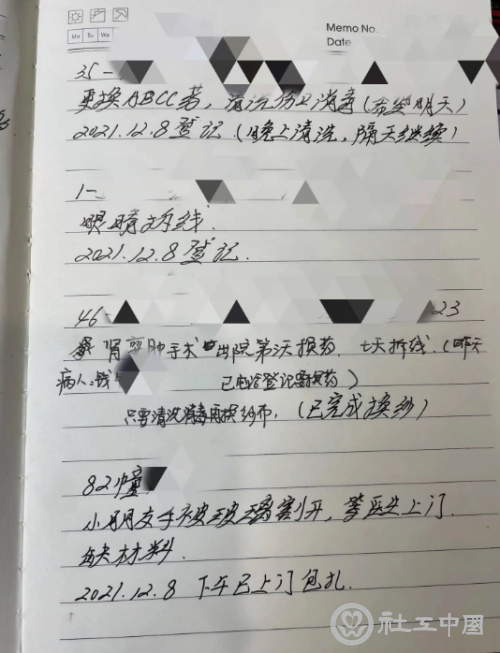 Memo No.
Date
Mo Tu We
35-
更换ABCC著，清洗伤口消毒（希望明天）
2021.12.8登记（晚上清洗，隔天继续）
1-
眼睛拆线.
2021.12.8登记.
46- 23
肾 肿手术 出院第 天换药. 七天拆线.（昨天
病人:钱 已电话登记需换药）
只要清洗消毒再换纱布，（已完成换纱）
82幢
小朋友手被玻璃割开，等医生上门.
缺材料.
2021.12.8 下午已上门包扎.
社工中國